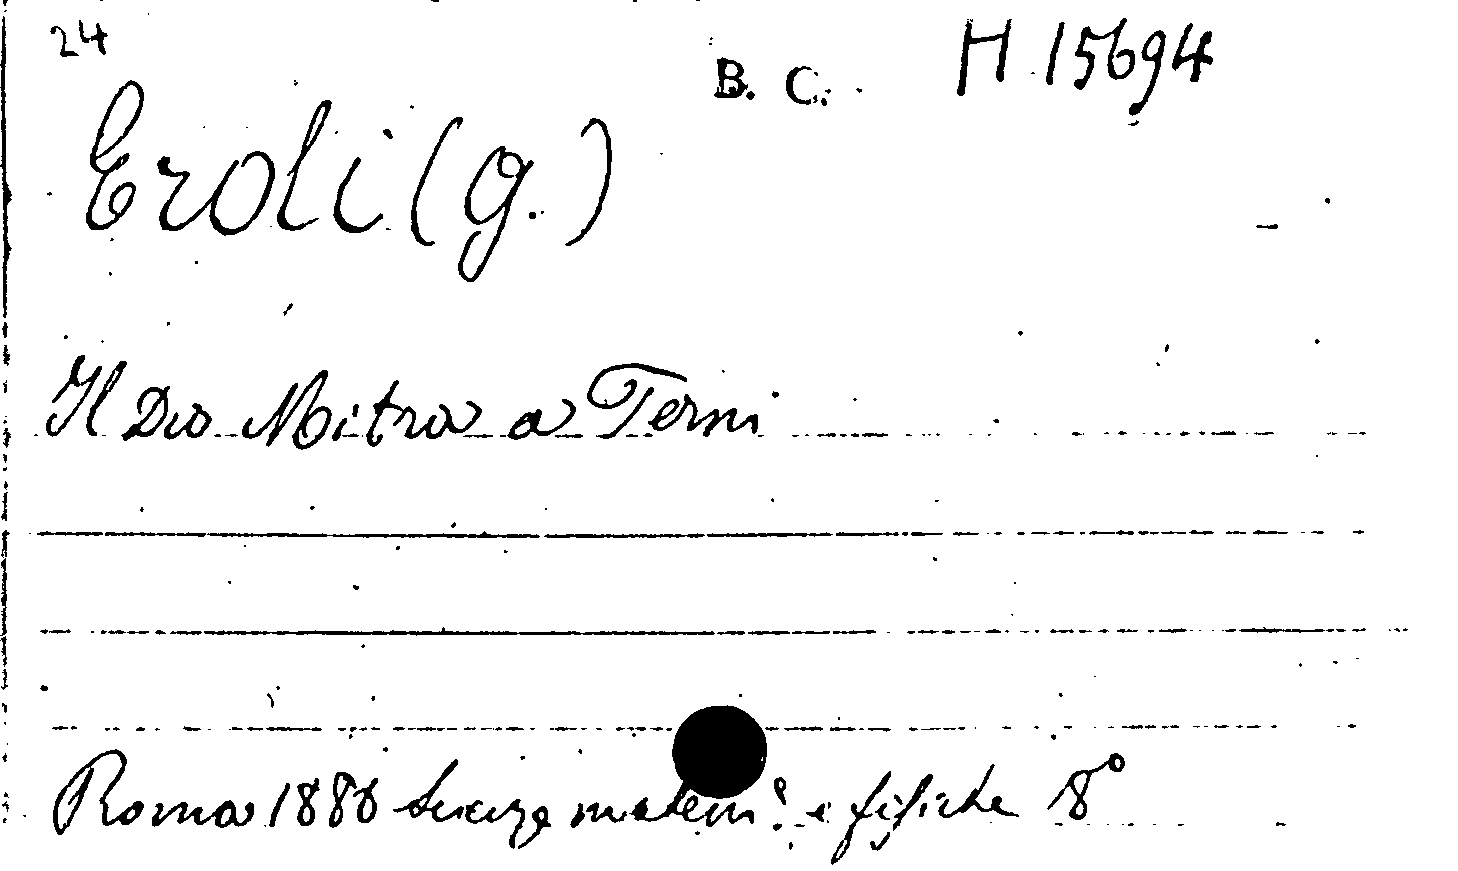 24
B. C. H 15694
Eroli (G.)
Il Dio Mitra a Terni
Roma 1880 Scienze matem: e fisiche 8°